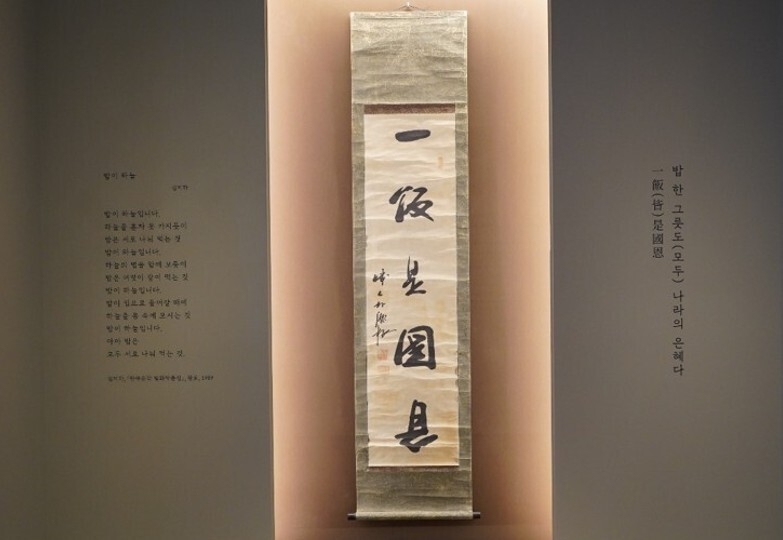 밥이 하늘
김지하
밥이 하늘입니다.
하늘을 혼자 못 가지듯이
밥은 서로 나눠 먹는 것
밥이 하늘입니다.
하늘의 별을 함께 보듯이
밥은 여럿이 같이 먹는 것
밥이 하늘입니다.
밥이 입으로 들어갈 때에
하늘을 몸 속에 모시는 것
밥이 하늘입니다.
아아 밥은
모두 서로 나눠 먹는 것.
一飯是國恩
밥 한 그릇도(모두) 나라의 은혜다
一飯(皆)是國恩